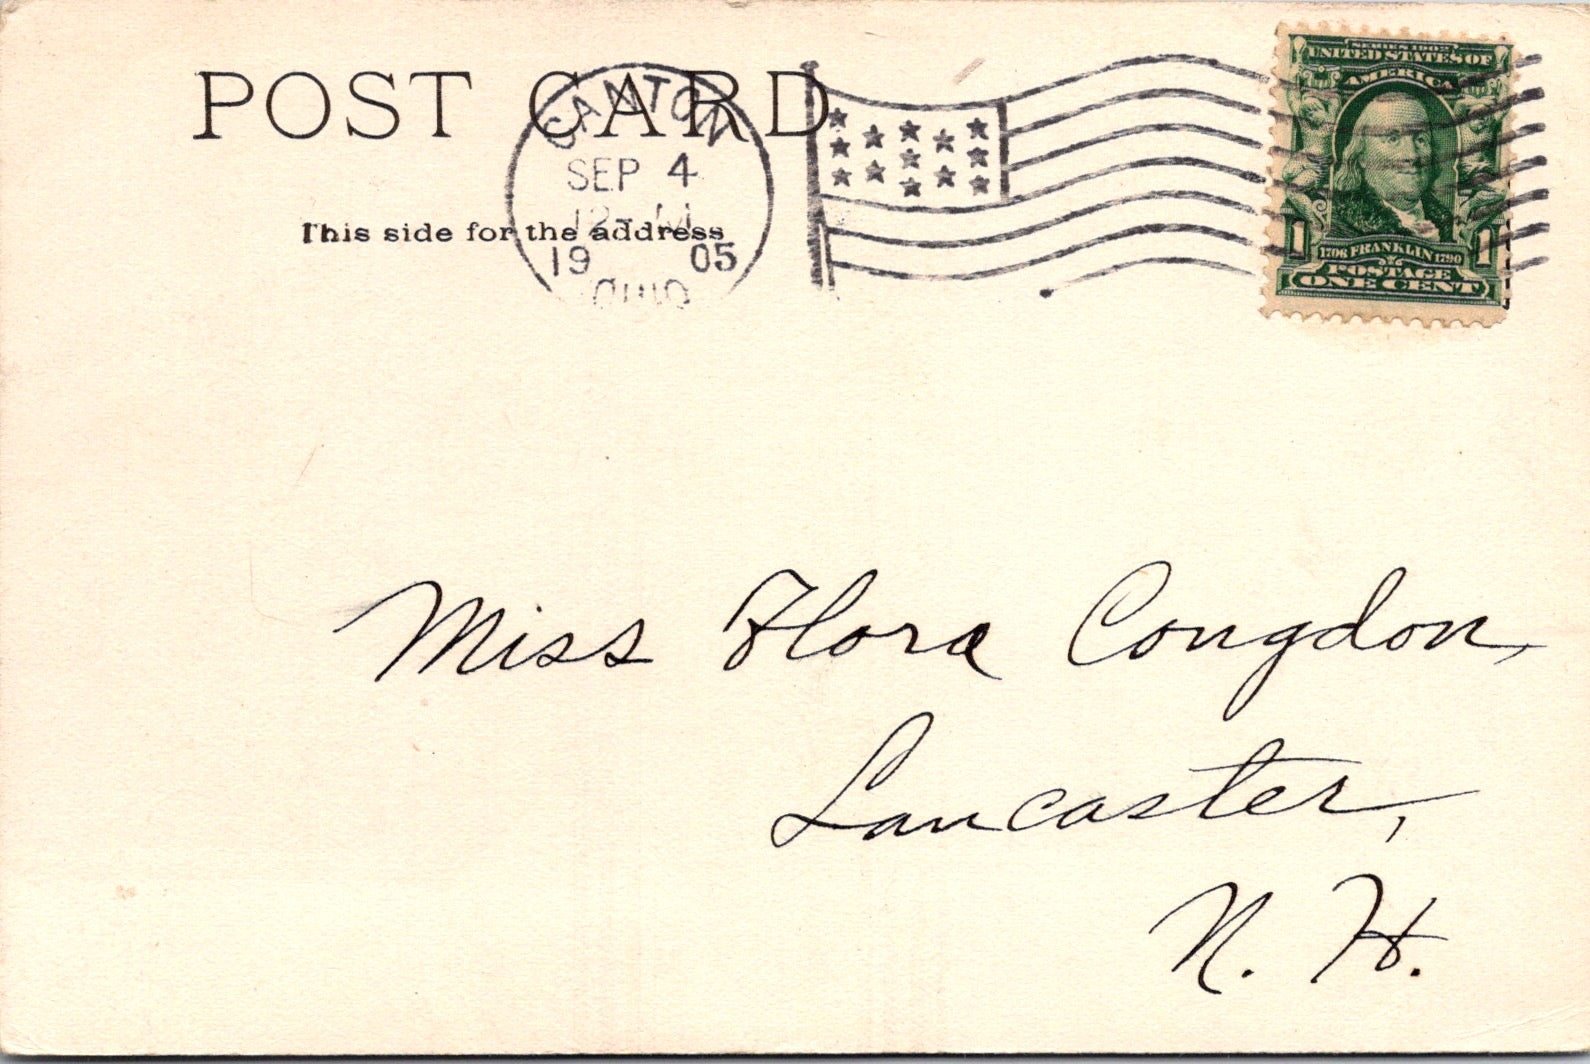 POST CARD
CANTON
SEP 4
12 M
1905
OHIO
This side for the address
SERIES 1902
UNITED STATES OF
AMERICA
1 1
1706 FRANKLIN 1790
POSTAGE
ONE CENT
Miss Flora Congdon,
Lancaster,
N. H.